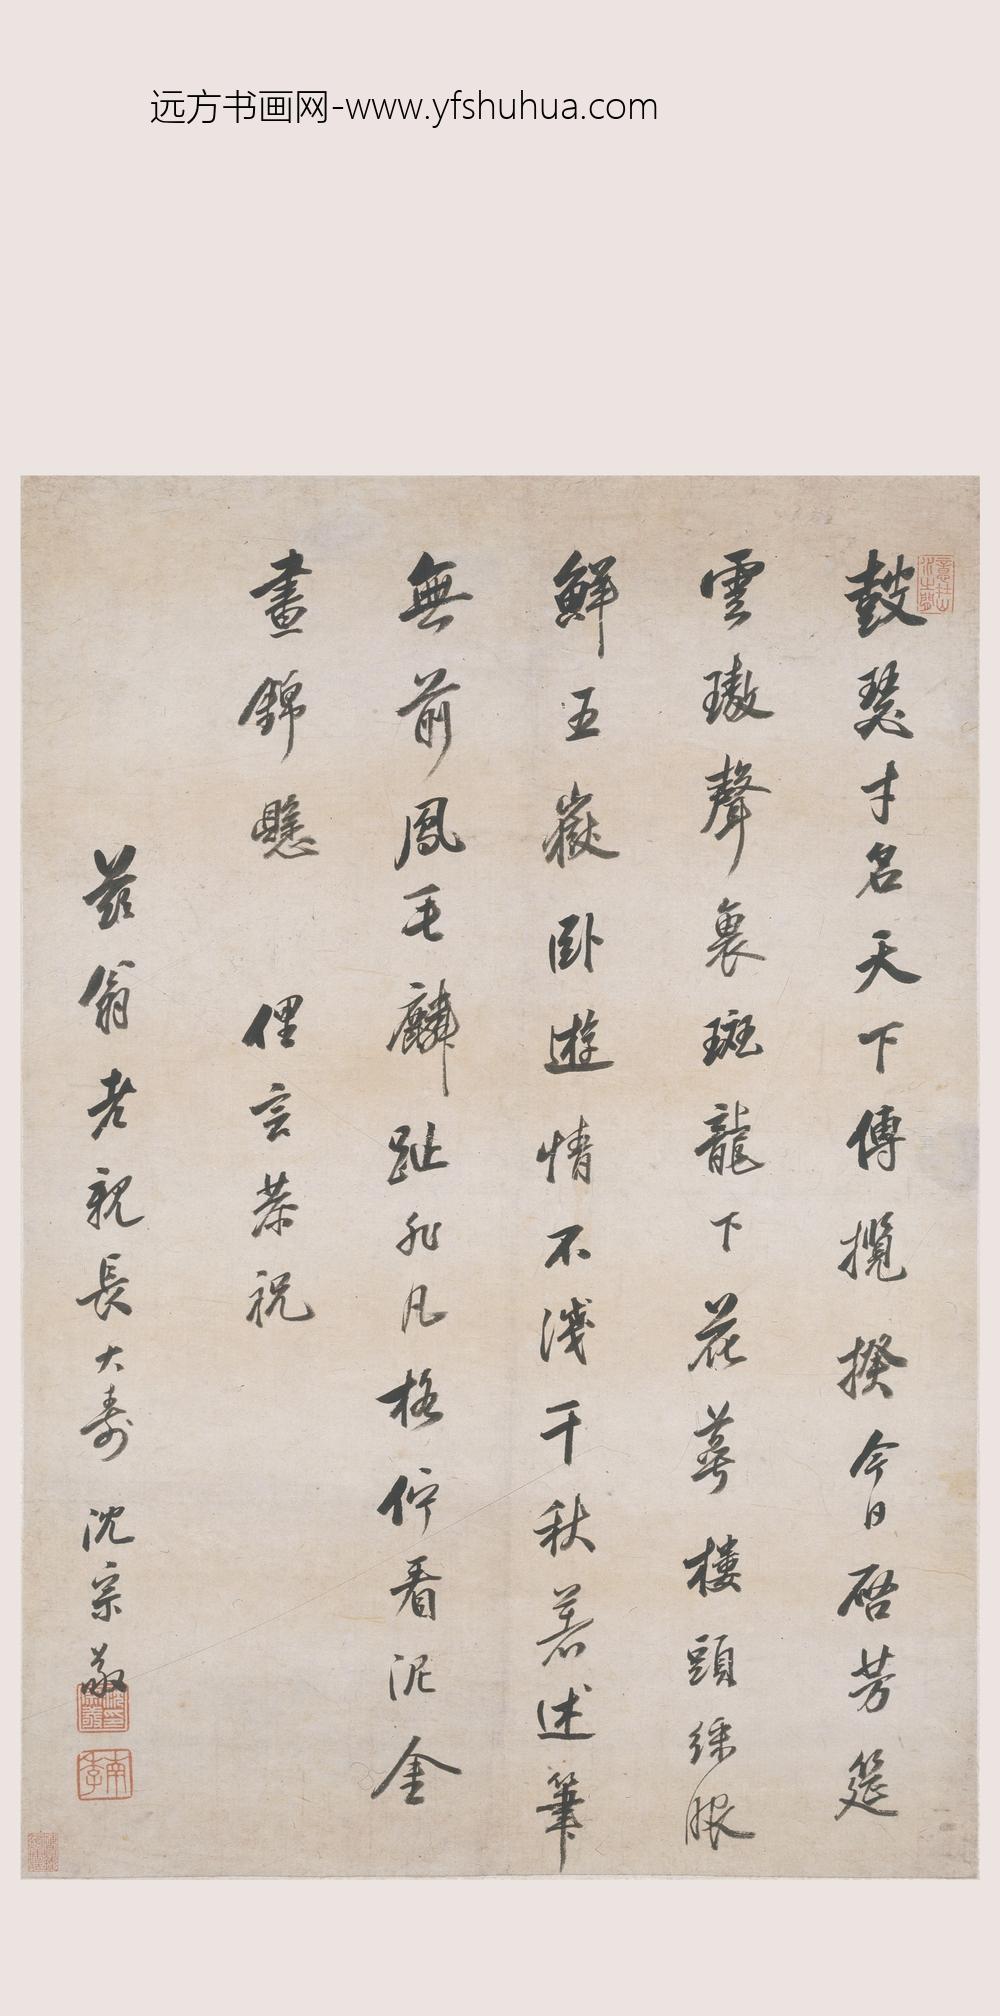 远方书画网-www.yfshuhua.com
鼓瑟才名天下傳攬揆今日啓芳筵
雲璈聲裏斑龍下花萼樓頭綵服
鮮五嶽卧遊情不淺千秋著述筆
無前鳳毛麟趾非凡格佇看泥金
晝錦懸 俚言恭祝
兹翁老親長大壽 沈宗敬